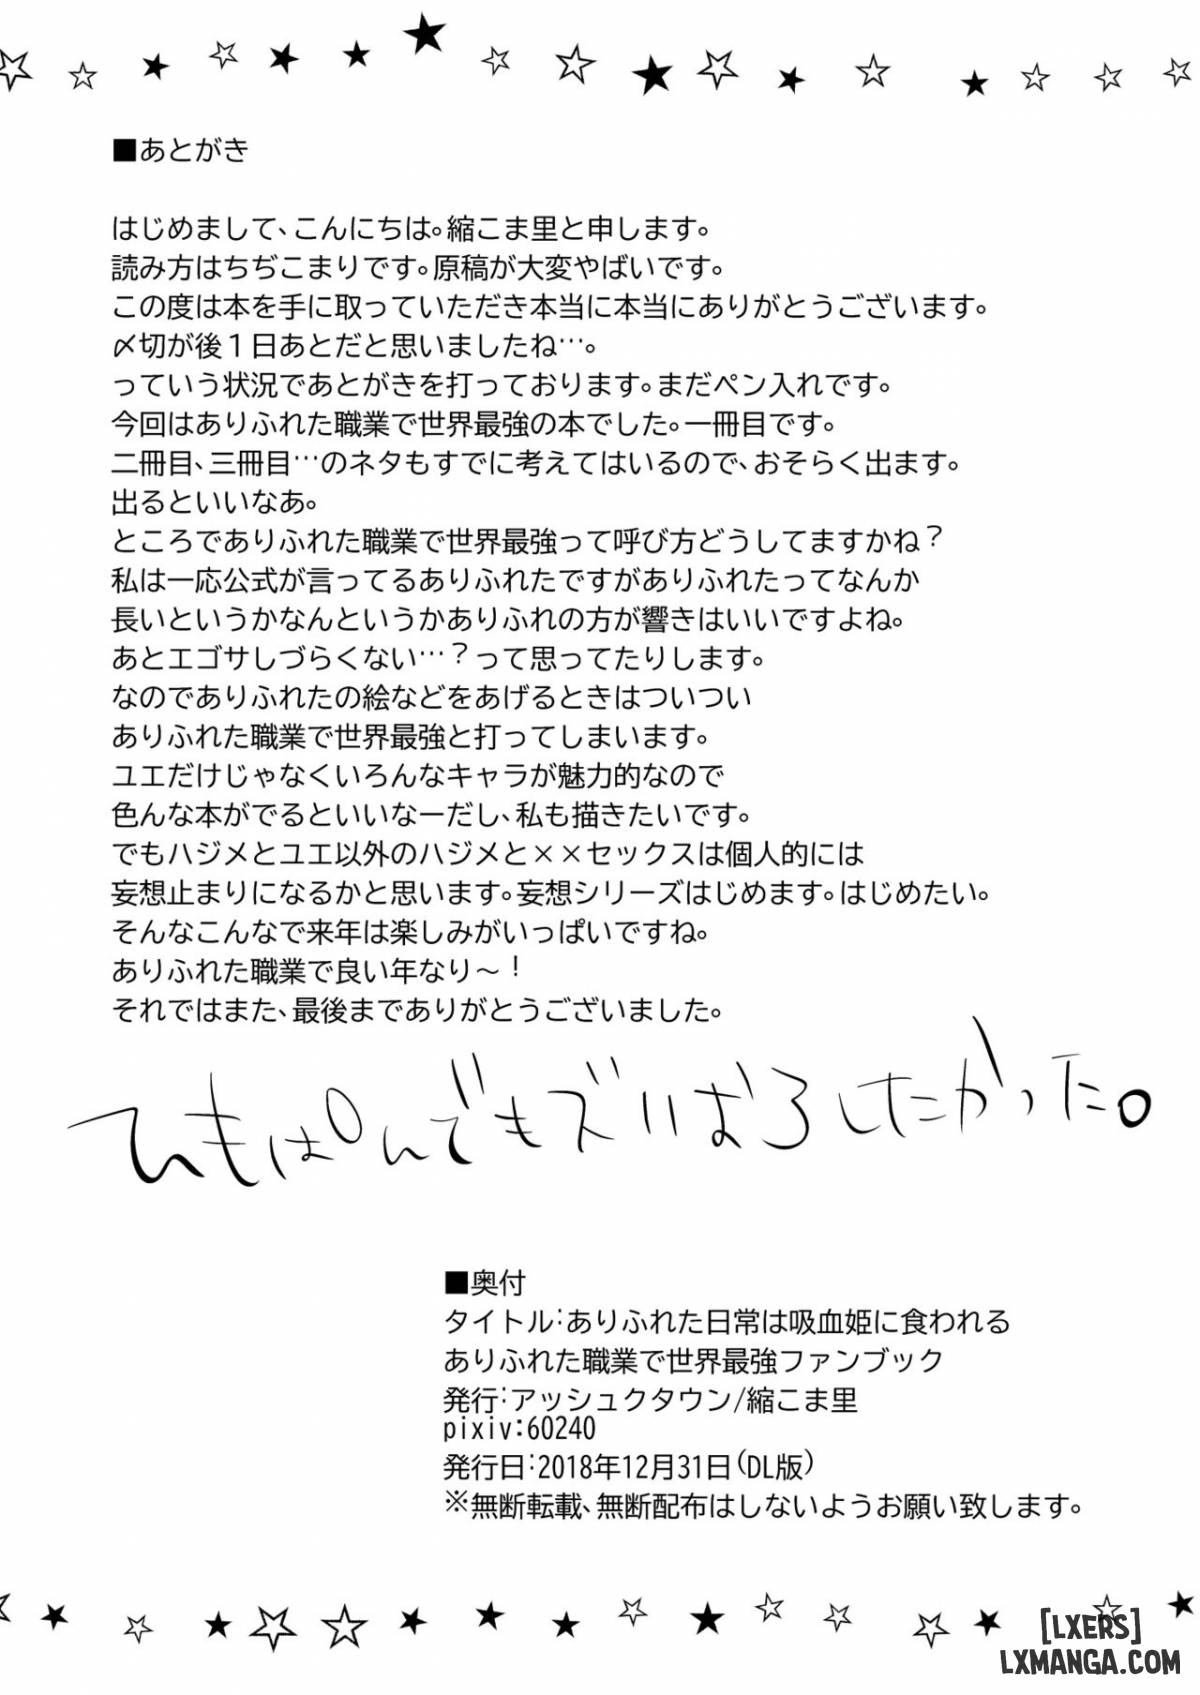 ■あとがき
はじめまして、こんにちは。縮こま里と申します。
読み方はちぢこまりです。原稿が大変やばいです。
この度は本を手に取っていただき本当に本当にありがとうございます。
〆切が後１日あとだと思いましたね…。
っていう状況であとがきを打っております。まだペン入れです。
今回はありふれた職業で世界最強の本でした。一冊目です。
二冊目、三冊目…のネタもすでに考えてはいるので、おそらく出ます。
出るといいなあ。
ところでありふれた職業で世界最強って呼び方どうしてますかね？
私は一応公式が言ってるありふれたですがありふれたってなんか
長いというかなんというかありふれの方が響きはいいですよね。
あとエゴサしづらくない…？って思ってたりします。
なのでありふれたの絵などをあげるときはついつい
ありふれた職業で世界最強と打ってしまいます。
ユエだけじゃなくいろんなキャラが魅力的なので
色んな本がでるといいなーだし、私も描きたいです。
でもハジメとユエ以外のハジメと××セックスは個人的には
妄想止まりになるかと思います。妄想シリーズはじめます。はじめたい。
そんなこんなで来年は楽しみがいっぱいですね。
ありふれた職業で良い年なり～！
それではまた、最後までありがとうございました。
ひもぱんでもズリおろしたかった。
■奥付
タイトル：ありふれた日常は吸血姫に食われる
ありふれた職業で世界最強ファンブック
発行：アッシュクタウン/縮こま里
pixiv：60240
発行日：2018年12月31日（DL版）
※無断転載、無断配布はしないようお願い致します。
[LXERS]
LXMANGA.COM